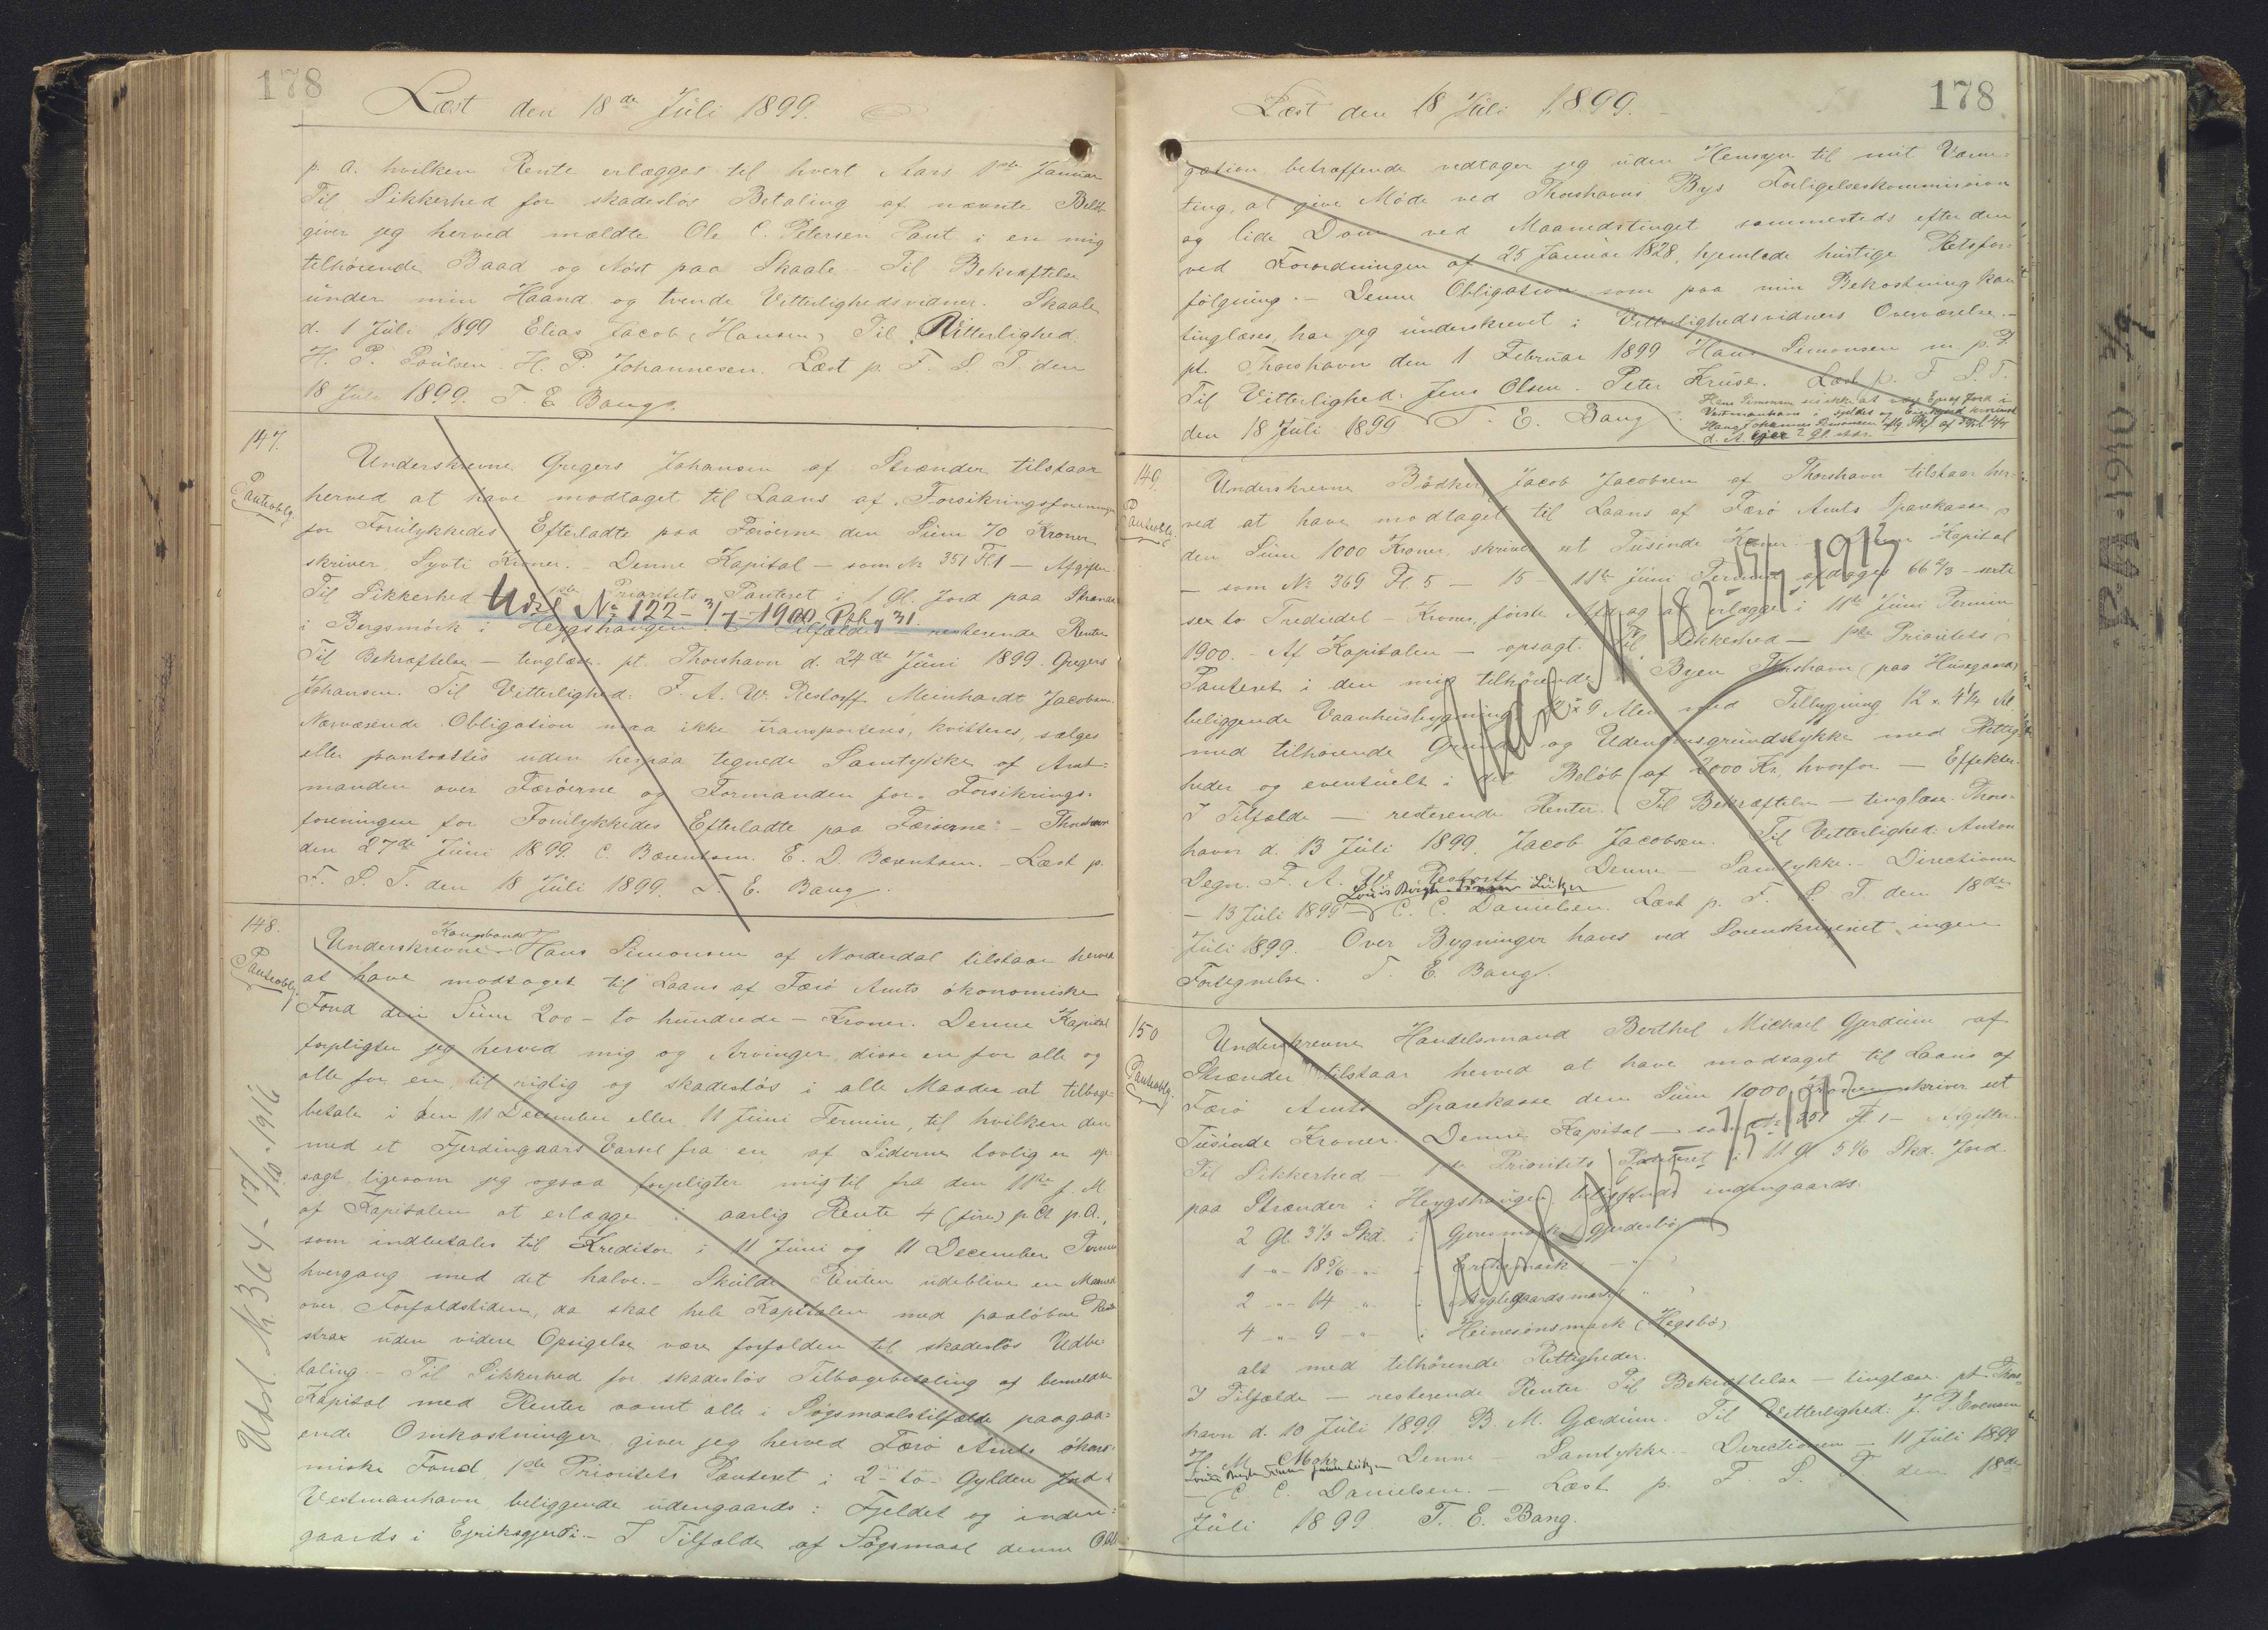 178
Læst den 18de Juli 1899.
p. a. hvilken Rente erlægges til hvert Aars 1ste Januar
Til Sikkerhed for skadeslös Betaling af nævnte Belöb
giver jeg herved mældte Ole C. Petersen Pant i en mig
tilhörende Baad og Nöst paa Skaale. Til Bekræftelse
under min Haand og tvende Vitterlighedsvidner. Skaale
d. 1 Juli 1899 Elias Jacob (Hansen) Til Vitterlighed.
H. P. Poulsen. H. P. Johannesen. Læst p. F. S. T. den
18 Juli 1899. T. E. Bang.
147.
Panteoblg.
Underskrevne Gregers Johansen af Strænder tilstaar
herved at have modtaget til Laans af "Forsikringsforeningen
for Forulykkedes Efterladte paa Færöerne den Sum 70 Kroner
skriver Syvti Kroner. - Denne Kapital - som No 351 Fl. 1 - Afgifter
Til Sikkerhed - 1ste Prioritets Panteret i 1 Gl. Jord paa Strænder
Udsl No 122 - 3/7 - 1900 Pbl. 31.
i Bergsmörk i Heygshaugen. I Tilfælde - resterende Renter
Til Bekræftelse - tinglæse. pt. Thorshavn d. 24de Juni 1899. Gregers
Johansen. Til Vitterlighed: F. A. W. Restorff. Meinhardt Jacobsen.
Nærværende Obligation maa ikke transporteres, kvitteres, sælges
eller pantsættes uden herpaa tegnede Samtykke af Amt-
manden over Færöerne og Formanden for "Forsikrings-
foreningen for Forulykkedes Efterladte paa Færöerne" - Thorshavn
den 27de Juni 1899. C. Bærentsen. E. D. Bærentsen. - Læst p.
F. S. T. den 18 Juli 1899. T. E. Bang.
148.
Panteoblg.
Kongsbonde
Underskrevne Hans Simonsen af Norderdal tilstaar herved
at have modtaget til Laans af Færö Amts ökonomiske
Fond den Sum 200 - to hundrede - Kroner. Denne Kapital
forpligter jeg herved mig og Arvinger, disse en for alle og
alle for en, til rigtig og skadeslös i alle Maader at tilbage-
betale i den 11 December eller 11 Juni Termin, til hvilken den
med et Fjerdingaars Varsel fra en af Siderne lovlig er op-
sagt, ligesom jeg ogsaa forpligter mig til fra den 11te f. M.
af Kapitalen at erlægge i aarlig Rente 4 (fire) p Ct p. A.,
som indbetales til Kreditor i 11 Juni og 11 December Termin
hvergang med det halve. - Skulde Renten udeblive en Maaned
over Forfaldstiden, da skal hele Kapitalen med paalöbne Rente
strax uden videre Opsigelse være forfalden til skadeslös Udbe-
taling. - Til Sikkerhed for skadeslös Tilbagebetaling af bemeldte
Kapital med Renter samt alle i Sögsmaalstilfælde paagaa-
ende Omkostninger giver jeg herved Færö Amts ökono-
miske Fond 1ste Prioritets Panteret i 2 - to - Gylden Jord i
Vestmanhavn beliggende udengaards i Fjeldet og inden-
gaards i Ejriksgjerdi. - I Tilfælde af Sögsmaal denne Obli-
Udsl. No 364 - 17/10 - 1916
178
Læst den 18 Juli 1899.
gation betræffende vedtager jeg uden Hensyn til mit Værne-
ting, at give Möde ved Thorshavns Bys Forligelseskommission
og lide Dom ved Maanedstinget sammesteds efter den
ved Forordningen af 25 Januar 1828, hjemlede hurtige Retsfor-
fölgning. - Denne Obligation som paa min Bekostning kan
tinglæses, har jeg underskrevet i Vitterlighedsvidners Overværelse. -
pt. Thorshavn den 1 Februar 1899 Hans Simonsen m. p. F.
Til Vitterlighed: Jens Olsen. Peter Kruse. Læst p. F. S. T.
den 18 Juli 1899 T. E. Bang
Hans Simonsen ses ikke at være Ejer af Jord i
Vestmanhavn i
149.
Panteoblg.
Underskrevne Bödker Jacob Jacobsen af Thorshavn tilstaar her-
ved at have modtaget til Laans af Færö Amts Sparekasse
den Sum 1000 Kroner, skriver et Tusinde Kroner. Denne Kapital
- som No 369 Fl 5 - 15 - 11te Juni Termin afdrages 66 2/3 - seksti
sex to Trediedel - Kroner, förste Afdrag at erlægges i 11te Juni Termin
1900. - Af Kapitalen - opsagt. Til Sikkerhed - 1ste Prioritets
Panteret i den mig tilhörende i Byen Thorshavn (paa Husegaard)
beliggende Vaanhusbygning 12 x 9 Alen med Tilbygning 12 x 4 1/4 Al.
med tilhörende Grund og Udengrundstykke med Rettig-
heder og eventuelt i det Belöb af 2000 Kr. hvorfor - Effekter.
I Tilfælde - resterende Renter. Til Bekræftelse - tinglæse. Thors-
havn d. 13 Juli 1899. Jacob Jacobsen. Til Vitterlighed: Anton
Degn. F. A. W. Restorff. Denne - Samtykke. - Directionen
- 13 Juli 1899 - C. C. Danielsen. Læst p. F. S. T. den 18de
Juli 1899. Over Bygninger haves ved Sorenskriveriet ingen
Fortegnelse. T. E. Bang.
150
Panteoblg.
Underskrevne Handelsmand Berthel Michael Gjerdum af
Strænder tilstaar herved at have modtaget til Laans af
Færö Amts Sparekasse den Sum 1000 Kroner skriver et
Tusinde Kroner. Denne Kapital - som No 351 Fl 1 - Afgifter.
Til Sikkerhed - 1ste Prioritets Panteret i 11 Gl 5 1/6 Skd. Jord
paa Strænder i Heygshaugen beliggende indengaards.
2 Gl. 3 1/3 Skd. i
1 - " - 18 5/6 - " - i
2 - " - 14 " i
4 - " - 9 - " - i Heinesönsmark (Hegsbö)
alt med tilhörende Rettigheder.
I Tilfælde - resterende Renter. Til Bekræftelse - tinglæse. pt. Thors-
havn d. 10 Juli 1899. B. M. Gjerdum. Til Vitterlighed: J. P. Evensen
H. M. Mohr. Denne - Samtykke. Directionen - 11 Juli 1899
- C. C. Danielsen. - Læst p. F. S. T. den 18de
Juli 1899 T. E. Bang.